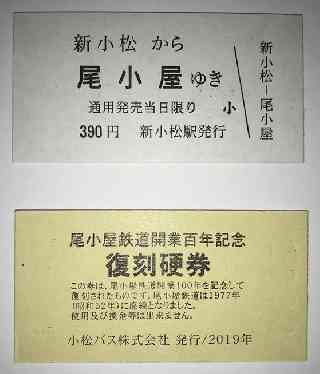 新小松 から
尾小屋 ゆき
通用発売当日限り 小
390円 新小松駅発行
新小松−尾小屋
尾小屋鉄道開業百年記念
復刻硬券
この券は、尾小屋鉄道開業100年を記念して
復刻されたものです。尾小屋鉄道は1977年
(昭和52年)に廃線となりました。
使用及び換金等は出来ません。
小松バス株式会社 発行/2019年